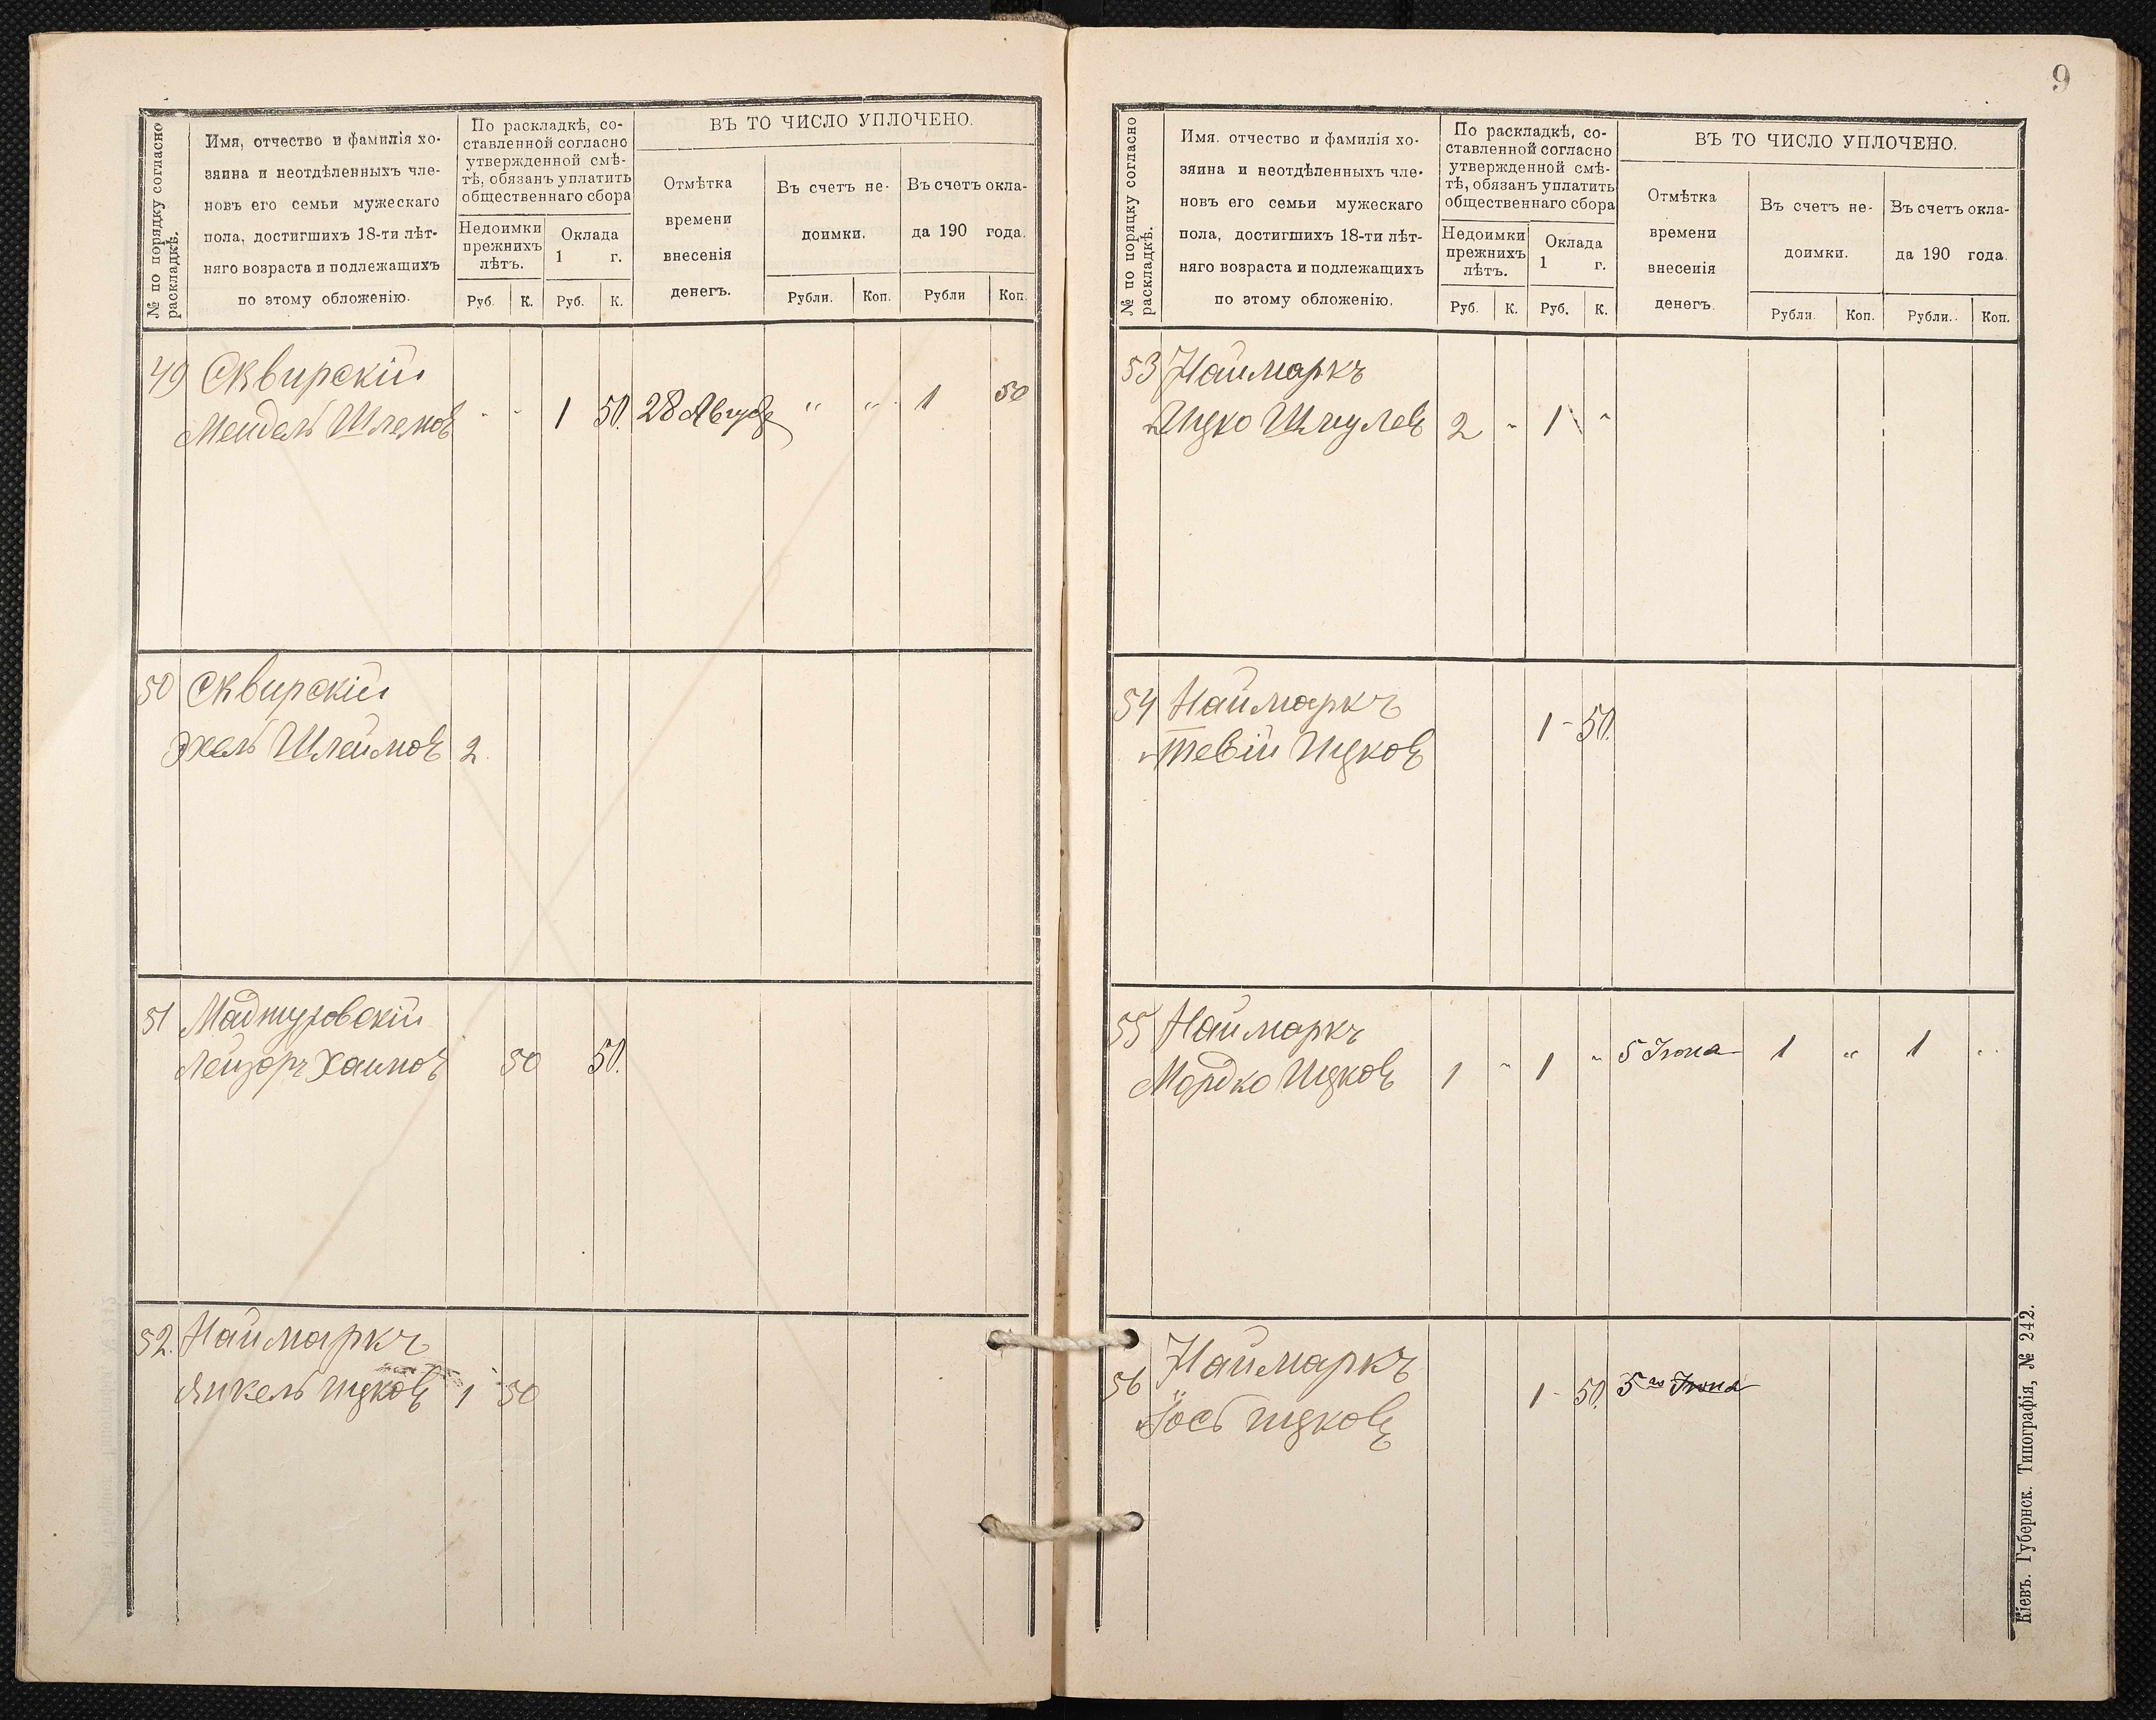 № по порядку согласно
раскладкѣ.
Имя, отчество и фамилія хо-
зяина и неотдѣленныхъ чле-
новъ его семьи мужескаго
пола, достигшихъ 18-ти лѣт-
няго возраста и подлежащихъ
по этому обложенію.
По раскладкѣ, со-
ставленной согласно
утвержденной смѣ-
тѣ, обязанъ уплатить
общественнаго сбора
Недоимки
прежнихъ
лѣтъ.
Оклада
1 г.
Руб. К. Руб. К.
ВЪ ТО ЧИСЛО УПЛОЧЕНО.
Отмѣтка
времени
внесенія
денегъ.
Въ счетъ не-
доимки.
Въ счетъ окла-
да 190 года.
Рубли. Коп. Рубли Коп.
49 Сквирскій
Мендель Шлемов - - 1 50. 28 Августа " " 1 50
50 Сквирскій
Шлеймовъ 2
51
Лейзоръ Хаимовъ 50 50.
52. Наймаркъ
Янкель Ицковъ 1 50
9
№ по порядку согласно
раскладкѣ.
Имя. отчество и фамилія хо-
зяина и неотдѣленныхъ чле-
новъ его семьи мужескаго
пола, достигшихъ 18-ти лѣт-
няго возраста и подлежащихъ
по этому обложенію.
По раскладкѣ, со-
ставленной согласно
утвержденной смѣ-
тѣ, обязанъ уплатить
общественнаго сбора
Недоимки
прежнихъ
лѣтъ.
Оклада
1 г.
Руб. К. Руб. К.
ВЪ ТО ЧИСЛО УПЛОЧЕНО.
Отмѣтка
времени
внесенія
денегъ.
Въ счетъ не-
доимки.
Въ счетъ окла-
да 190 года.
Рубли. Коп. Рубли. Коп.
53 Наймаркъ
Ицко Шмулев 2 " 1 "
54 Наймаркъ 1 - 50.
Тевій Ицковъ
55 Наймаркъ
Мордко Ицковъ 1 " 1 " 5 Іюна 1 " 1 "
56 Наймаркъ 1 - 50. 5 Іюна
Іось Ицковъ
Кіевъ. Губернск. Типографія, № 242.